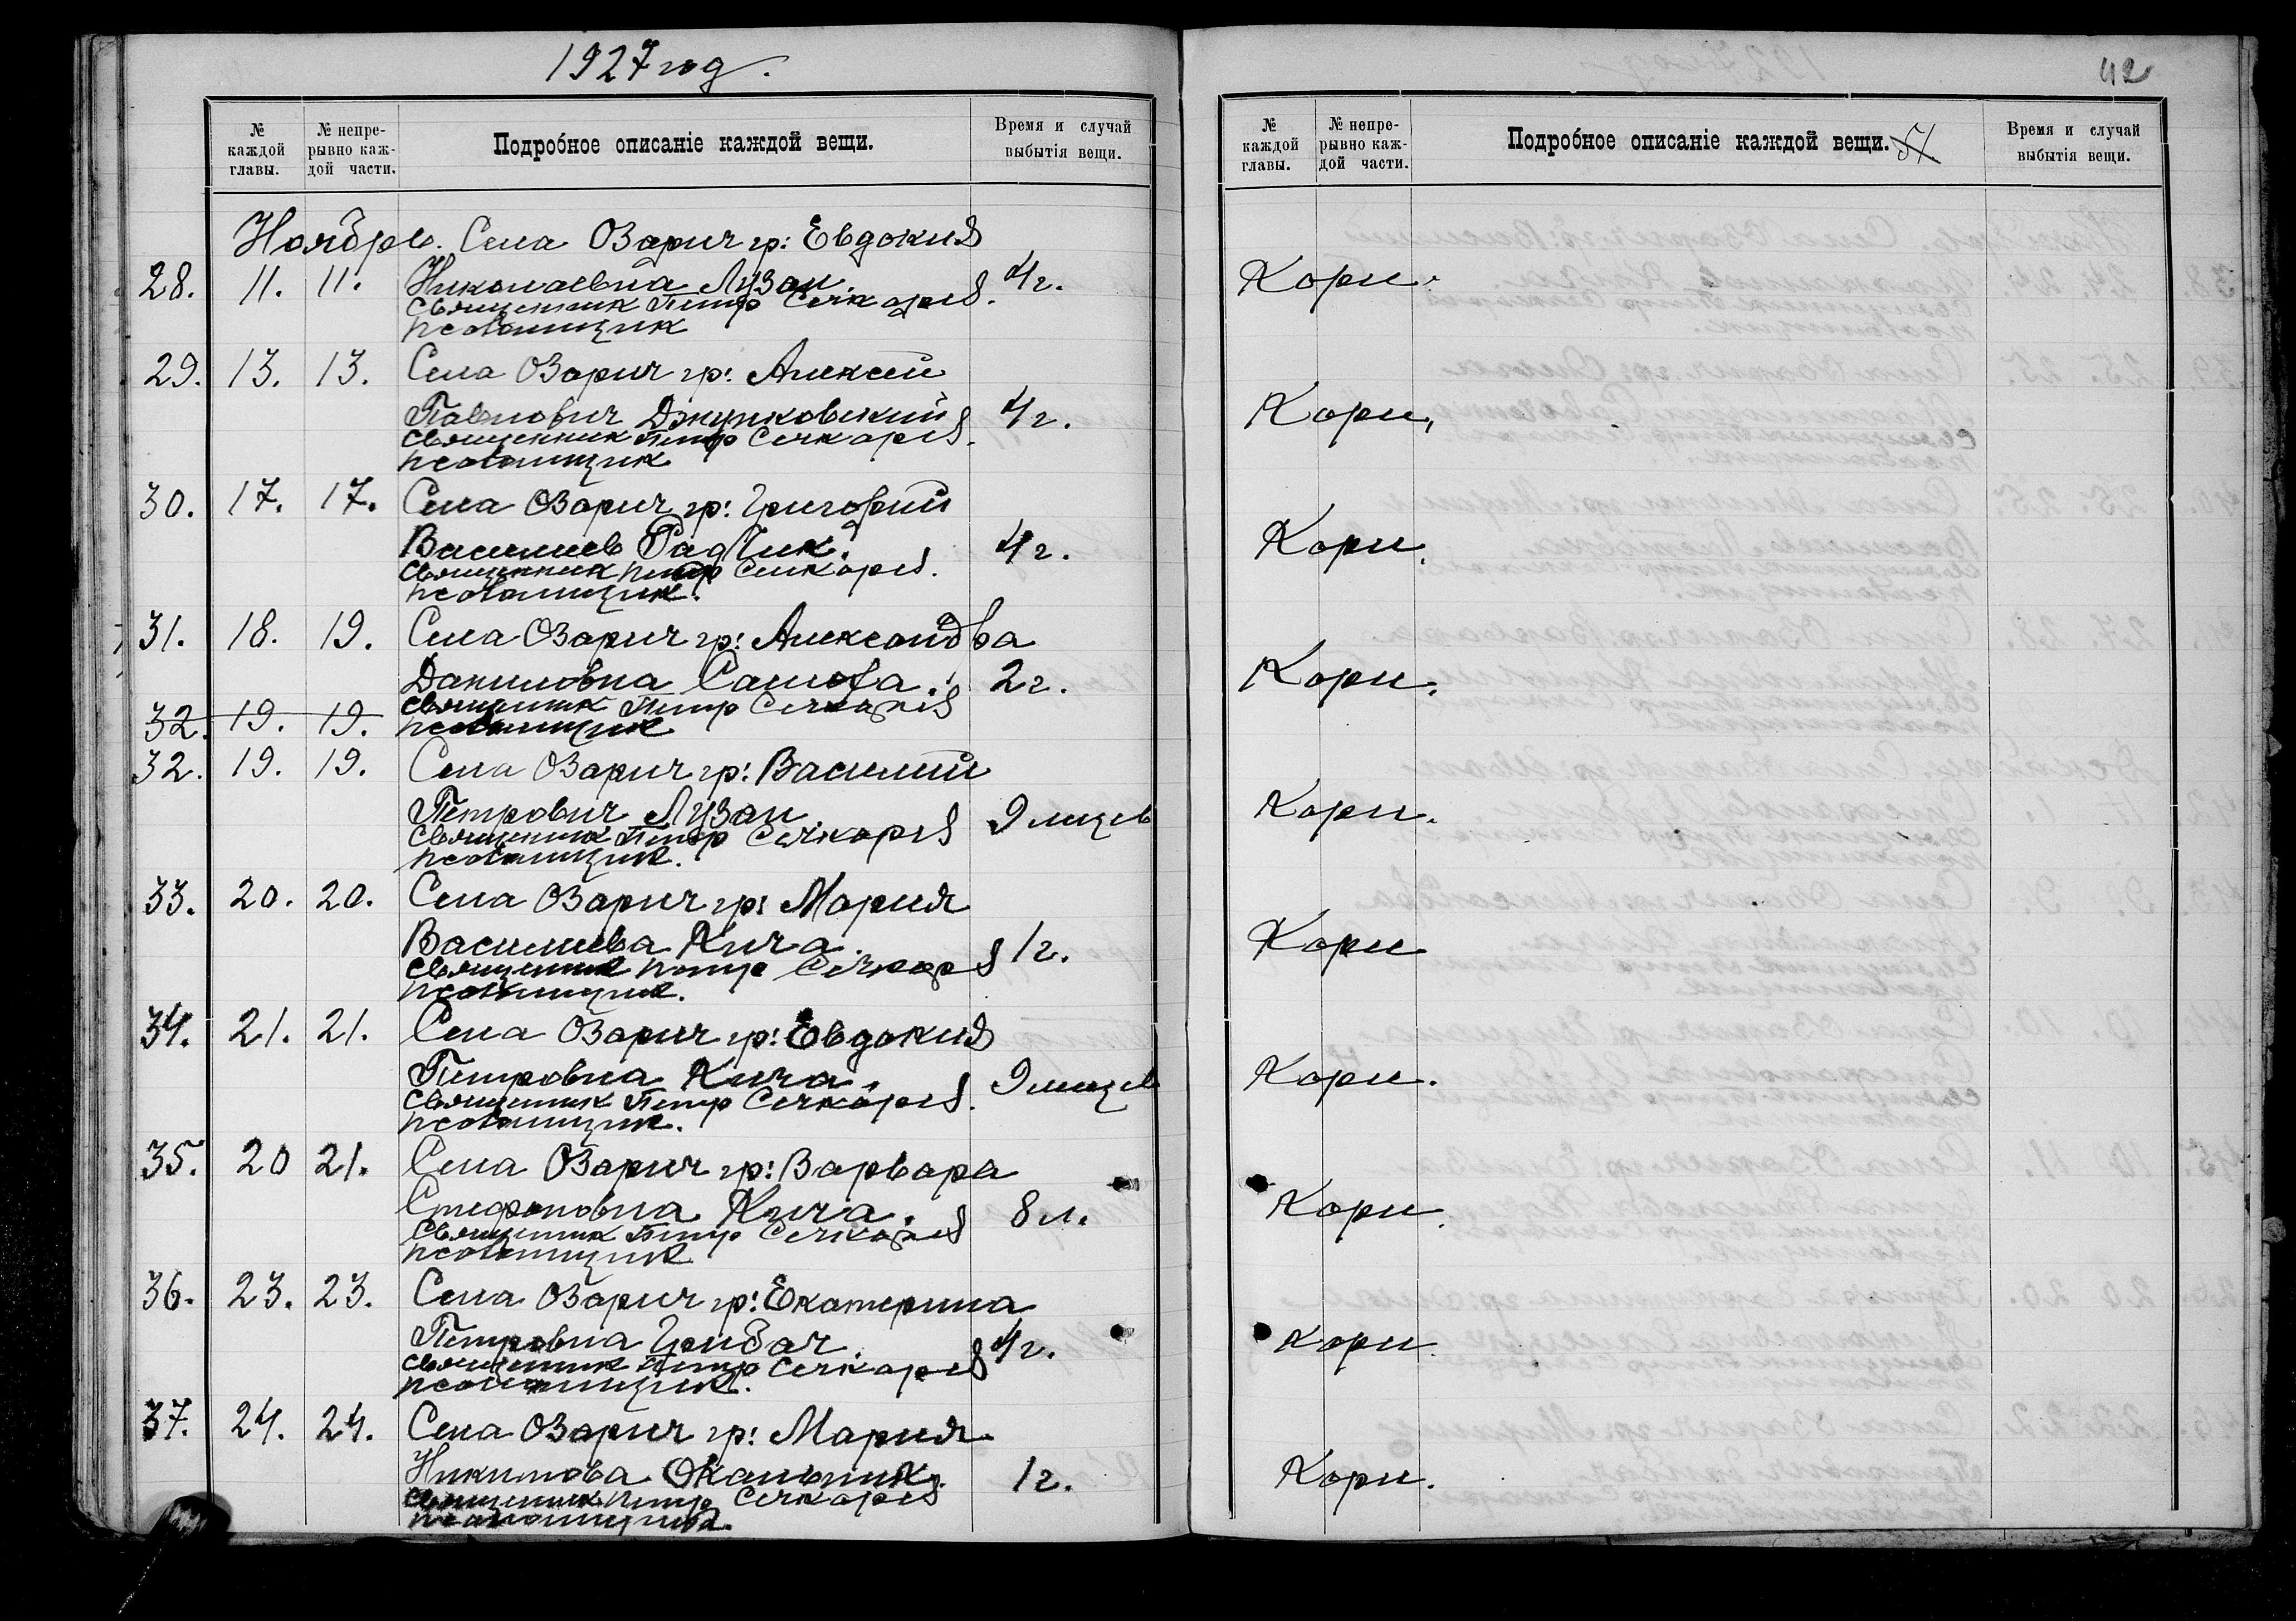 1927 год.
№ каждой главы. № непрерывно каждой части. Подробное описаніе каждой вещи. Время и случай выбытія вещи.
Ноябрь. Села Озарич гр: Евдокия
28. 11. 11. Николаевна Лузан. 4 г.
священник Петр Сечкарев.
псаломщик
29. 13. 13. Села Озарич гр: Алексей
Павлович Джунковский 4 г.
священник Петр Сечкарев.
псаломщик
30. 17. 17. Села Озарич гр: Григорий
Василиев 4 г.
священник Петр Сечкарев.
псаломщик.
31. 18. 19. Села Озарич гр: Александра
Даниловна 2 г.
священник Петр Сечкарев
32. 19. 19. псаломщик
32. 19. 19. Села Озарич гр: Василий
Петрович Лузан 9 месяцев
священник Петр Сечкарев
псаломщик.
33. 20. 20. Села Озарич гр: Мария
Василиева Кича. 1 г.
священник Петр Сечкарев
псаломщик.
34. 21. 21. Села Озарич гр: Евдокия
Петровна Кича. 9 месяцев
священник Петр Сечкарев.
псаломщик.
35. 20 21. Села Озарич гр: Варвара
Стефановна Кича. 8 л.
священник Петр Сечкарев
псаломщик
36. 23. 23. Села Озарич гр: Екатерина
Петровна 4 г.
священник Петр Сечкарев
псаломщик.
37. 24. 24. Села Озарич гр: Мария
Никитова 1 г.
священник Петр Сечкарев
псаломщик.
42
№ каждой главы. № непрерывно каждой части. Подробное описаніе каждой вещи. 51 Время и случай выбытія вещи.
Кори.
Кори.
Кори.
Кори.
Кори.
Кори
Кори.
Кори.
Кори
Кори.